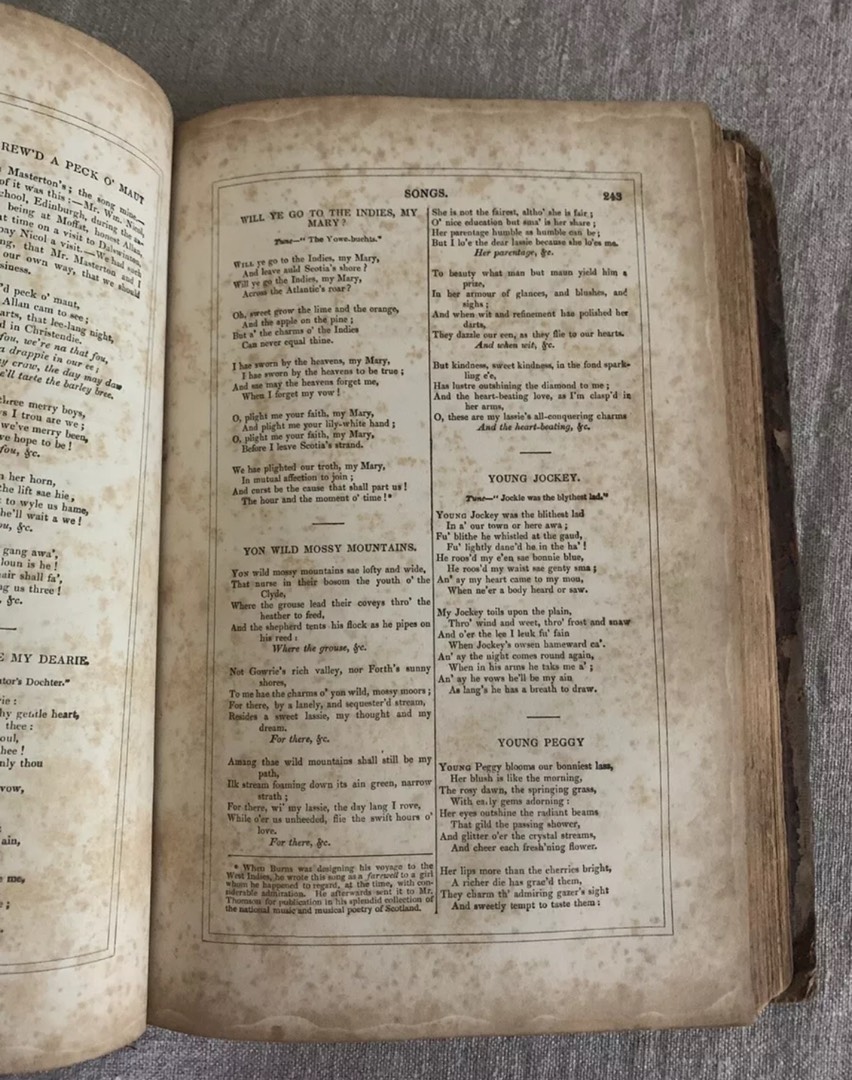 REW'D A PECK O' MAUT
Masterton's; the song mine.—
of it was this:—Mr. Wm. Nicol,
chool, Edinburgh, during the
being at Moffat, honest Allan,
at time on a visit to Dalswinton,
pay Nicol a visit.—We had such
ng, that Mr. Masterton and I
our own way, that we should
siness.
'd peck o' maut,
Allan cam to see;
arts, that lee-lang night,
d in Christendie.
fou, we're na that fou,
a drappie in our ee;
ay craw, the day may daw
e'll taste the barley bree.
three merry boys,
ys I trow are we;
we've merry been,
we hope to be!
fou, &c.
n her horn,
the lift sae hie,
t to wyle us hame,
he'll wait a we!
ou, &c.
gang awa',
loun is he!
air shall fa',
ng us three!
, &c.
E MY DEARIE.
ator's Dochter."
rie:
hy gentle heart,
thee:
oul,
hee!
nly thou
vow,
ain,
e me,
e;
SONGS. 243
WILL YE GO TO THE INDIES, MY
MARY?
Tune—"The Yowe-buchts."
WILL ye go to the Indies, my Mary,
And leave auld Scotia's shore?
Will ye go the Indies, my Mary,
Across the Atlantic's roar?
Oh, sweet grow the lime and the orange,
And the apple on the pine;
But a' the charms o' the Indies
Can never equal thine.
I hae sworn by the heavens, my Mary,
I hae sworn by the heavens to be true;
And sae may the heavens forget me,
When I forget my vow!
O, plight me your faith, my Mary,
And plight me your lily-white hand;
O, plight me your faith, my Mary,
Before I leave Scotia's strand.
We hae plighted our troth, my Mary,
In mutual affection to join;
And curst be the cause that shall part us!
The hour and the moment o' time!*
YON WILD MOSSY MOUNTAINS.
YON wild mossy mountains sae lofty and wide,
That nurse in their bosom the youth o' the
Clyde,
Where the grouse lead their coveys thro' the
heather to feed,
And the shepherd tents his flock as he pipes on
his reed:
Where the grouse, &c.
Not Gowrie's rich valley, nor Forth's sunny
shores,
To me hae the charms o' yon wild, mossy moors;
For there, by a lanely, and sequester'd stream,
Resides a sweet lassie, my thought and my
dream.
For there, &c.
Amang thae wild mountains shall still be my
path,
Ilk stream foaming down its ain green, narrow
strath;
For there, wi' my lassie, the day lang I rove,
While o'er us unheeded, flie the swift hours o'
love.
For there, &c.
* When Burns was designing his voyage to the
West Indies, he wrote this song as a farewell to a girl
whom he happened to regard, at the time, with con-
siderable admiration. He afterwards sent it to Mr.
Thomson for publication in his splendid collection of
the national music and musical poetry of Scotland.
She is not the fairest, altho' she is fair;
O' nice education but sma' is her share;
Her parentage humble as humble can be;
But I lo'e the dear lassie because she lo'es me.
Her parentage, &c.
To beauty what man but maun yield him a
prize,
In her armour of glances, and blushes, and
sighs;
And when wit and refinement hae polished her
darts,
They dazzle our een, as they flie to our hearts.
And when wit, &c.
But kindness, sweet kindness, in the fond spark-
ling e'e,
Has lustre outshining the diamond to me;
And the heart-beating love, as I'm clasp'd in
her arms,
O, these are my lassie's all-conquering charms
And the heart-beating, &c.
YOUNG JOCKEY.
Tune—"Jockie was the blythest lad."
YOUNG Jockey was the blithest lad
In a' our town or here awa;
Fu' blithe he whistled at the gaud,
Fu' lightly danc'd he in the ha'!
He roos'd my e'en sae bonnie blue,
He roos'd my waist sae genty sma;
An' ay my heart came to my mou,
When ne'er a body heard or saw.
My Jockey toils upon the plain,
Thro' wind and weet, thro' frost and snaw
And o'er the lee I leuk fu' fain
When Jockey's owsen hameward ca'.
An' ay the night comes round again,
When in his arms he taks me a';
An' ay he vows he'll be my ain
As lang's he has a breath to draw.
YOUNG PEGGY
YOUNG Peggy blooms our bonniest lass,
Her blush is like the morning,
The rosy dawn, the springing grass,
With early gems adorning:
Her eyes outshine the radiant beams
That gild the passing shower,
And glitter o'er the crystal streams,
And cheer each fresh'ning flower.
Her lips more than the cherries bright,
A richer die has grac'd them,
They charm th' admiring gazer's sight
And sweetly tempt to taste them: